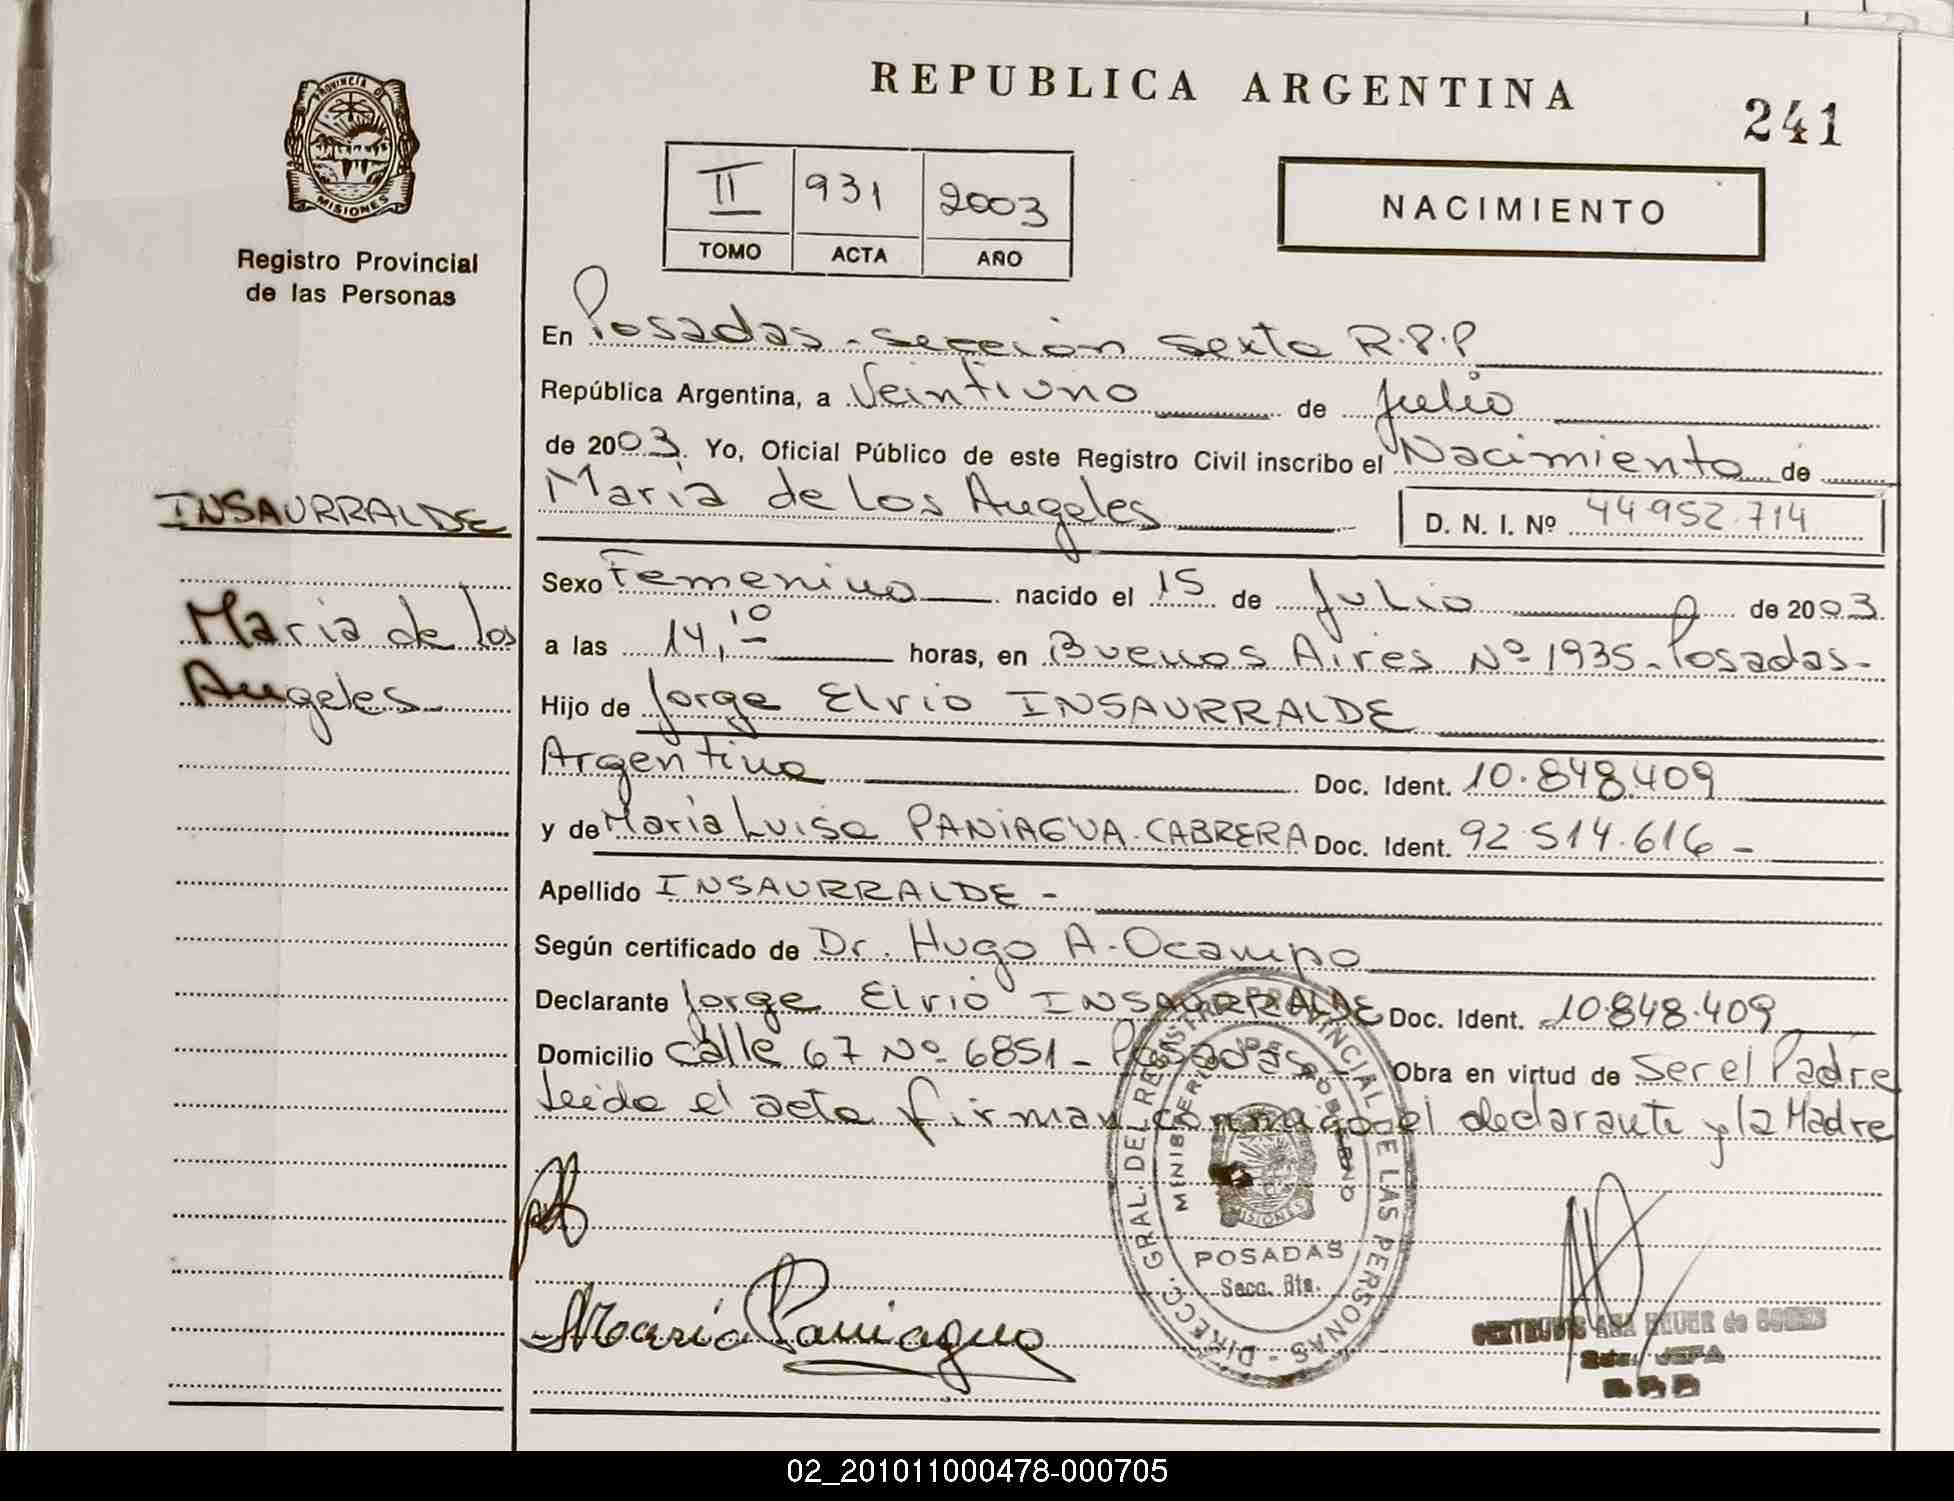 REPUBLICA ARGENTINA
241
PROVINCIA DE
MISIONES
Registro Provincial
de las Personas
II 931 2003
TOMO ACTA AÑO
NACIMIENTO
En Posadas - sección sexta R.P.P
República Argentina, a Veintiuno de Julio
de 2003. Yo, Oficial Público de este Registro Civil inscribo el Nacimiento de
María de los Angeles D. N. I. Nº 44.952.714
INSAURRALDE
María de los
Angeles
Sexo Femenino nacido el 15 de Julio de 2003.
a las 14,10 horas, en Buenos Aires Nº 1935 - Posadas -
Hijo de Jorge Elvio INSAURRALDE
Argentino Doc. Ident. 10.848.409
y de María Luisa PANIAGUA CABRERA Doc. Ident. 92.514.616 -
Apellido INSAURRALDE -
Según certificado de Dr. Hugo A. Ocampo
Declarante Jorge Elvio INSAURRALDE Doc. Ident. 10.848.409
Domicilio Calle 67 Nº 6851 - Posadas Obra en virtud de ser el Padre
Leída el acta firman conmigo el declarante y la Madre
DIRECC. GRAL. DEL REGISTRO PROVINCIAL DE LAS PERSONAS -
MINISTERIO DE GOBIERNO
MISIONES
POSADAS
Secc. 6ta.
María Paniagua
JEFA
02_201011000478-000705